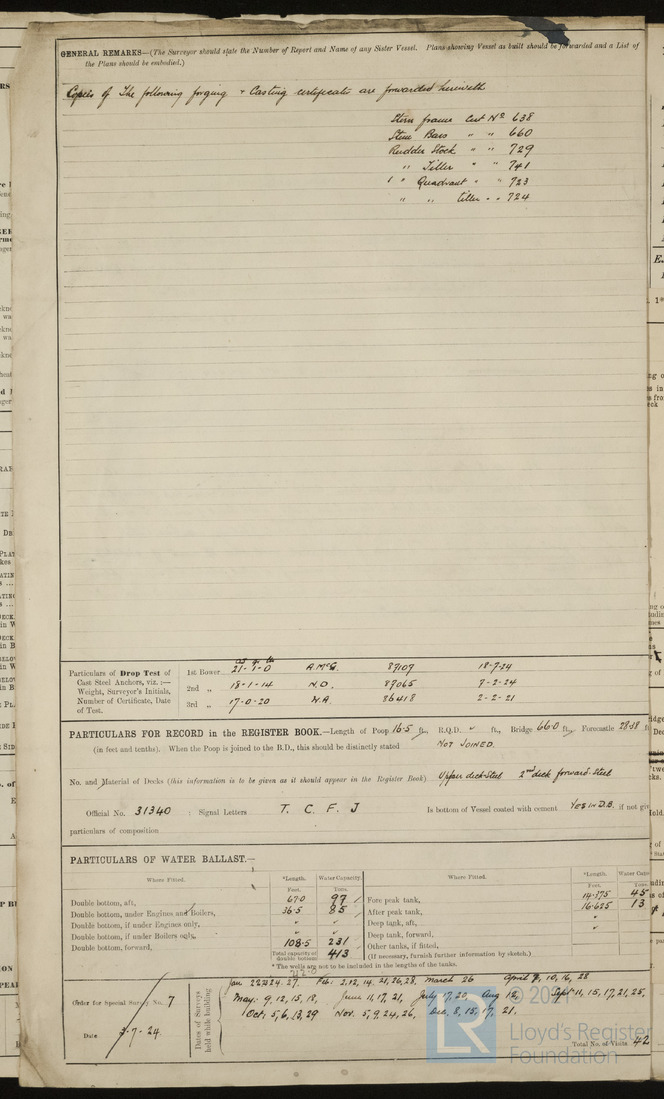 GENERAL REMARKS—(The Surveyor should state the Number of Report and Name of any Sister Vessel. Plans showing Vessel as built should be forwarded and a List of
the Plans should be embodied.)
Copies of The following forging & Casting certificate are forwarded herewith
Stern frame Cert No 638
Stem Bars " " 660
Rudder Stock " " 729
" Tiller " " 741
1 " Quadrant " " 723
" " tiller " " 724
Particulars of Drop Test of
Cast Steel Anchors, viz. :—
Weight, Surveyor's Initials,
Number of Certificate, Date
of Test.
1st Bower 21-1-0 A.McG. 87107 18-7-24
2nd " 18-1-14 N.O. 87065 7-2-24
3rd " 17-0-20 W.A. 86418 2-2-21
PARTICULARS FOR RECORD in the REGISTER BOOK.—Length of Poop 16.5 ft., R.Q.D. " ft., Bridge 66.0 ft., Forecastle 28.38 ft
(in feet and tenths). When the Poop is joined to the B.D., this should be distinctly stated NOT JOINED.
No. and Material of Decks (this information is to be given as it should appear in the Register Book) Upper deck-Steel 2nd deck forward-Steel
Official No. 31340 : Signal Letters T. C. F. J Is bottom of Vessel coated with cement YES IN D.B. if not giv
particulars of composition
PARTICULARS OF WATER BALLAST.—
Where Fitted. *Length. Water Capacity. Where Fitted. *Length. Water Capa
Feet. Tons. Feet. Tons.
Double bottom, aft, 67.0 97 Fore peak tank, 14.875 45
Double bottom, under Engines and Boilers, 36.5 85 After peak tank, 16.625 13
Double bottom, if under Engines only, " " Deep tank, aft, "
Double bottom, if under Boilers only, " " Deep tank, forward, "
Double bottom, forward, 108.5 231 Other tanks, if fitted,
Total capacity of double bottom 413 (If necessary, furnish further information by sketch.)
* The wells are not to be included in the lengths of the tanks.
212.0
Order for Special Survey No. 7
Date 3-7-24.
Dates of Surveys held while building
Feb: 2,12,14,21,26,28, March 26 April 8, 10, 16, 28
May: 9,12,15,18, June 11,17,21, July 17,20, Aug 12, Sept 11,15,17,21,25,
Oct; 5,6,13,29 Nov. 5,9,24,26, Dec. 8,15,17, 21.
Total No. of Visits 42
© 2021
LR
Lloyd's Register
Foundation